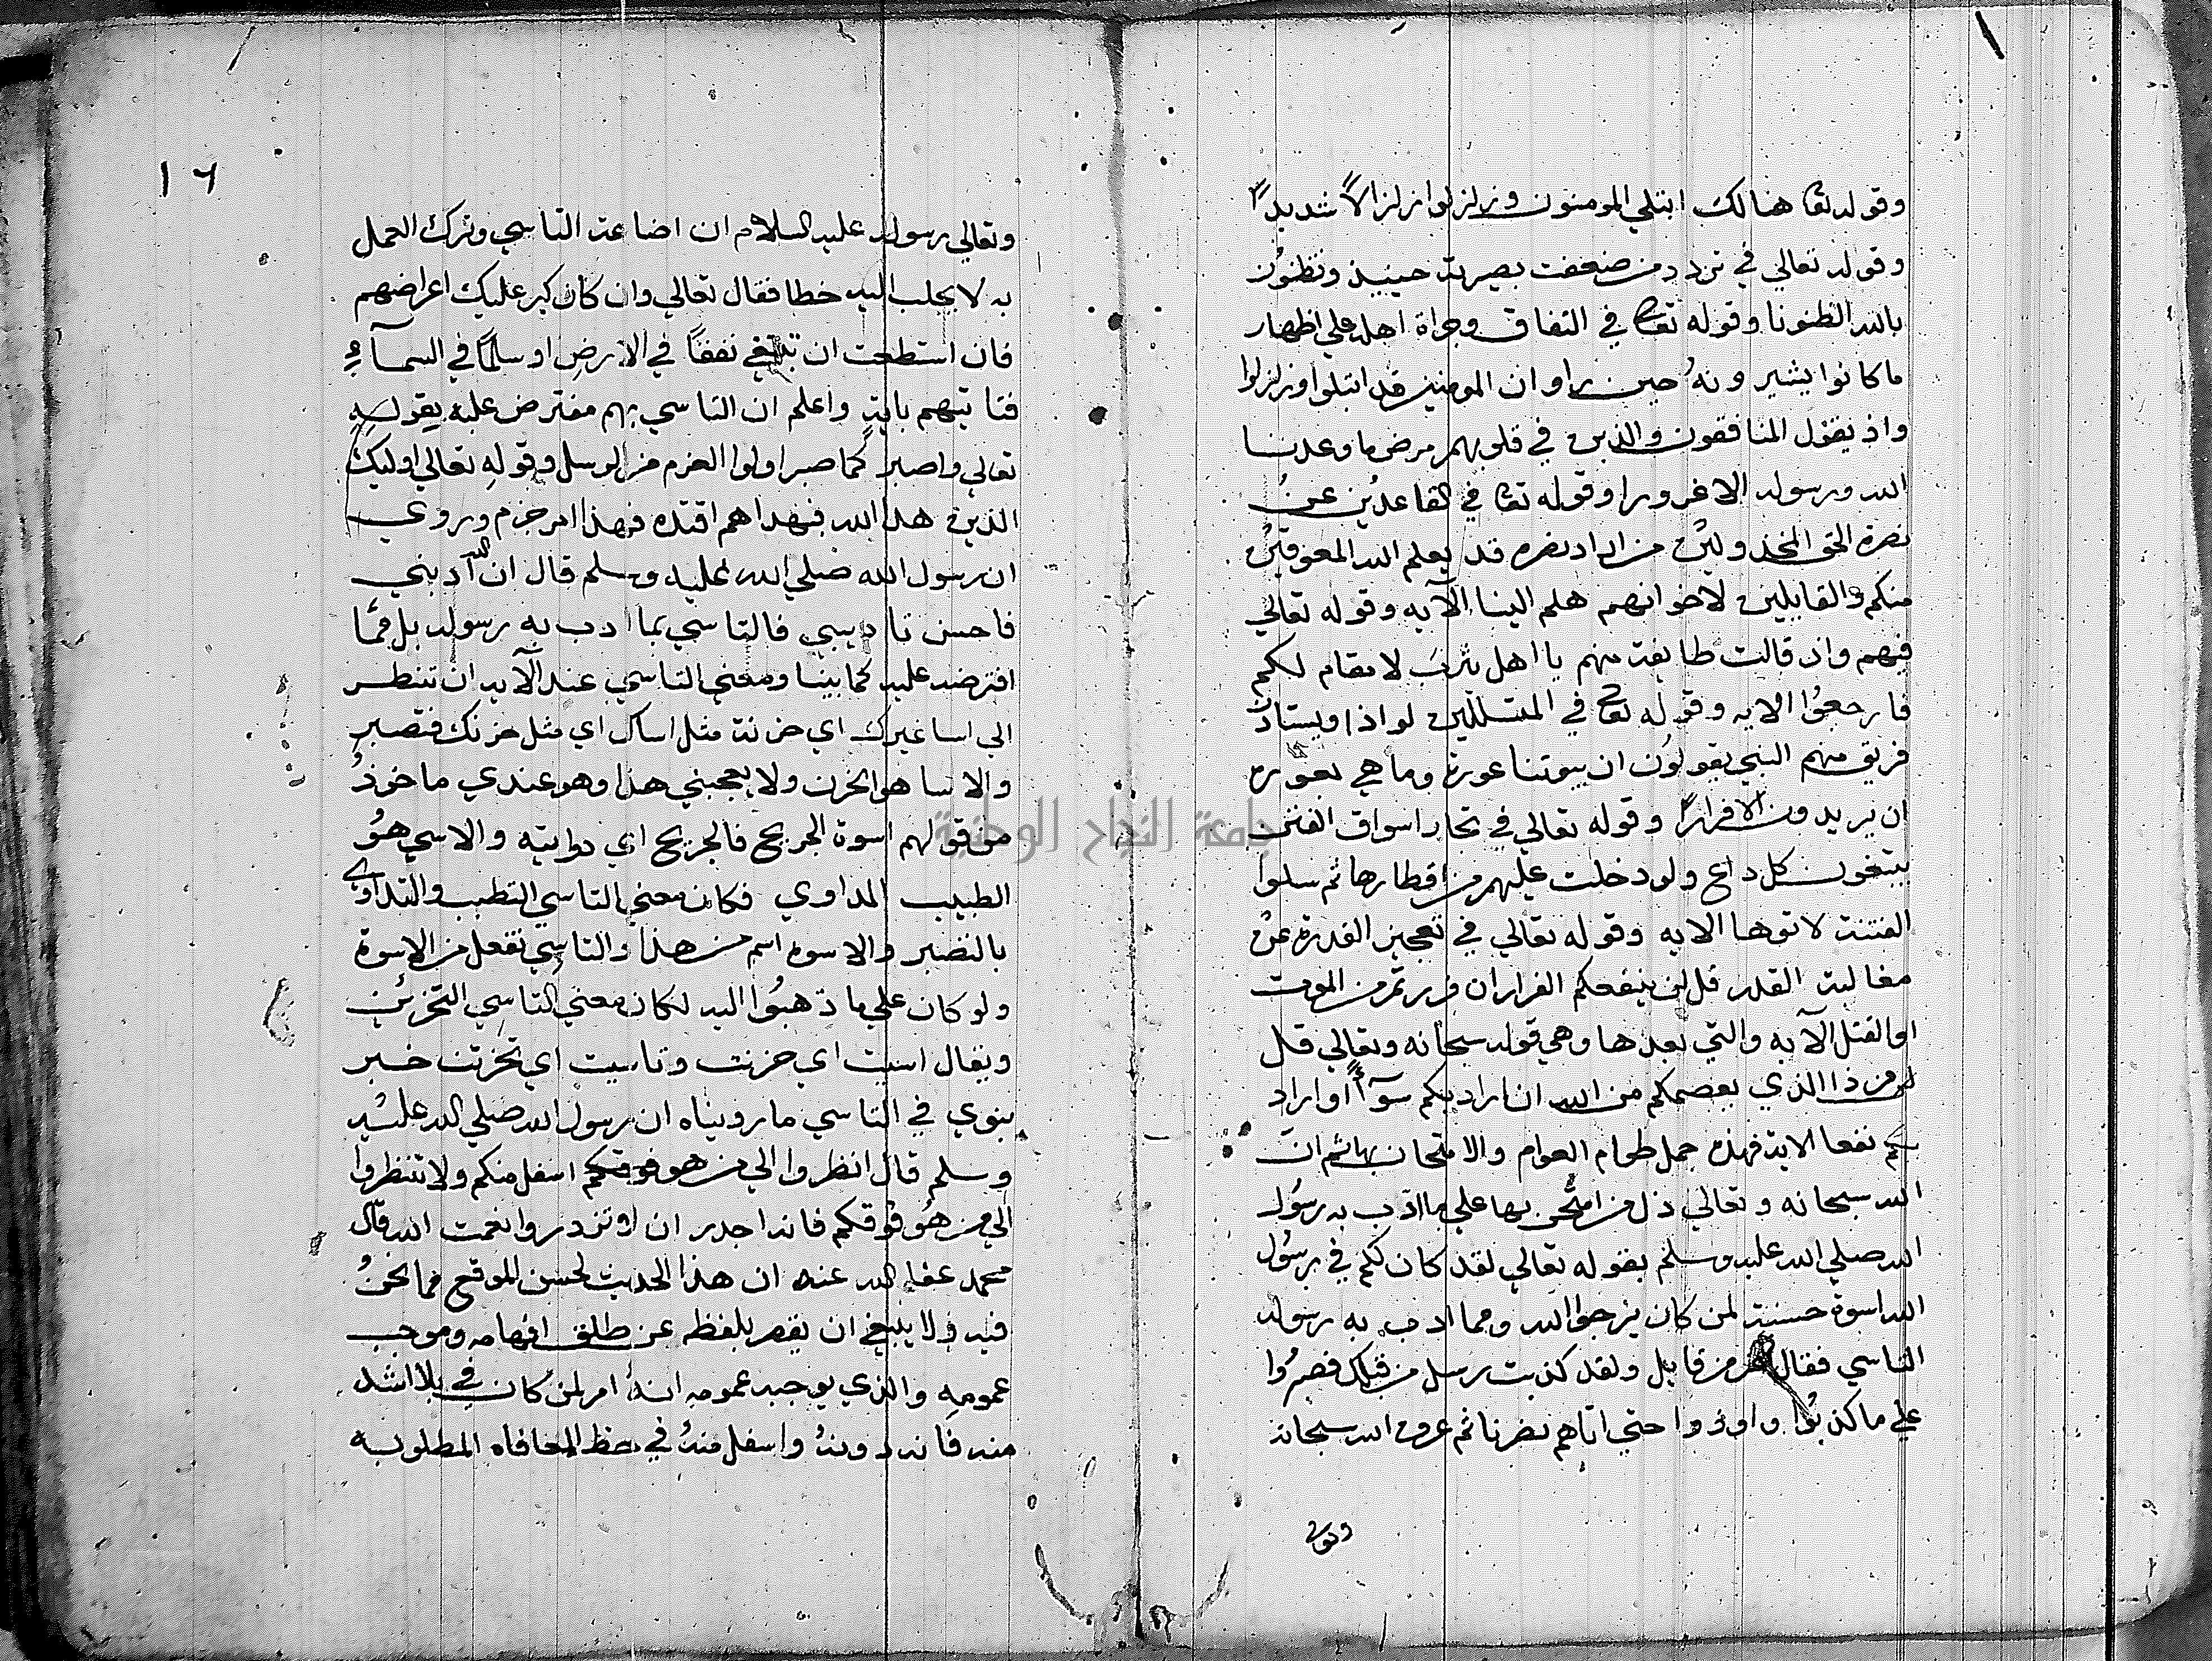 وقوله تعا هنالك ابتلي المومنون وزلزلوا زلزالاً شديداً
وقوله تعالي في تردد من ضعفت بصيرته حينيذ وتظنون
بالله الظنونا وقوله تعا في النفاق وجراة اهله علي اظهار
ما كانوا يشيرونه حين راوان المومنين قد ابتلوا وزلزلوا
واذ يقول المنافقون والذين في قلوبهم مرض ما وعدنا
الله ورسوله الا غرورا وقوله تعا في القاعدين عن
نصرة الحق المخذولين من اراد نصره قد يعلم الله المعوقين
منكم والقايلين لاخوانهم هلم الينا الآيه وقوله تعالي
فيهم واذ قالت طايفة منهم يا اهل يثرب لا مقام لكم
فارجعوا الايه وقوله تعا في المتسللين لواذا ويستاذن
فريق منهم النبي يقولون ان بيوتنا عورة وما هي بعوره
ان يريدون الا فراراً وقوله تعالي في تجار اسواق الفتن
يبتغون كل داع ولو دخلت عليهم من اقطارها ثم سلوا
الفتنة لاتوها الايه وقوله تعالي في تعجيز القدرة عن
مغالبة القدر قل لن ينفعكم الفرار ان فررتم من الموت
او القتل الآيه والتي بعدها وهي قوله سبحانه وتعالي قل
من ذا الذي يعصمكم من الله ان اراد بكم سوآً او اراد
بكم نفعا الايه فهذه جمل طعام العوام والامتحان بها ثم ان
الله سبحانه وتعالي دل من امتحن بها علي ما ادب به رسول
الله صلي الله عليه وسلم بقوله تعالي لقد كان لكم في رسول
الله اسوة حسنة لمن كان يرجوا الله ومما ادب به رسوله
التاسي فقال من قايل ولقد كذبت رسل من قبلك فصبروا
علي ما كذبوا واوذوا حتي اتاهم نصرنا ثم عرف الله سبحانه
وتعالي
١٦
وتعالي رسوله عليه السلام ان اضاعة التاسي وترك العمل
به لا يجلب اليه خطا فقال تعالي وان كان كبر عليك اعراضهم
فان استطعت ان تبتغي نفقاً في الارض او سلماً في السمآءِ
فتاتيهم باية واعلم ان التاسي بهم مفترض عليه بقوله
تعالي واصبر كما صبر اولوا العزم من الرسل وقوله تعالي اوليك
الذين هدا الله فبهداهم اقتده فهذا امر جزم وروي
ان رسول الله صلي الله عليه وسلم قال ان الله ادبني
فاحسن تاديبي فالتاسي بما ادب به رسوله بل مما
افترضه عليه كما بينا ومعني التاسي عند الآيه ان تنظر
الي اسا غيرك اي حزنه مثل اساك اي مثل حزنك فتصبر
والاسا هو الحزن ولا يعجبني هذا وهو عندي ماخوذ
من قولهم اسوة الجريح فالجريح اي داويته والاسي هو
الطبيب المداوي فكان معني التاسي التطبب والتداوي
بالتصبر والاسوه اسم من هذا والتاسي تفعل من الاسوة
ولو كان علي ما ذهبوا اليه لكان معني التاسي التحزين
ويقال اسيت اي حزنت وتاسيت اي تحزنت خبر
نبوي في التاسي ما رويناه ان رسول الله صلي الله عليه
وسلم قال انظروا الي من هو فوقكم اسفل منكم ولا تنظروا
الي من هو فوقكم فانه اجدر ان لا تزدروا نعمت الله قال
محمد عفا الله عنه ان هذا الحديث لحسن الموقع مما نحن
فيه ولا ينبغي ان يقصر بلفظه عن طلق افهامه وموجب
عمومه والذي يوجبه عمومه انه امر لمن كان في بلا اشد
منه فانه دونه واسفل منه في حظ المعافاه المطلوبه
جامعة النجاح الوطنية